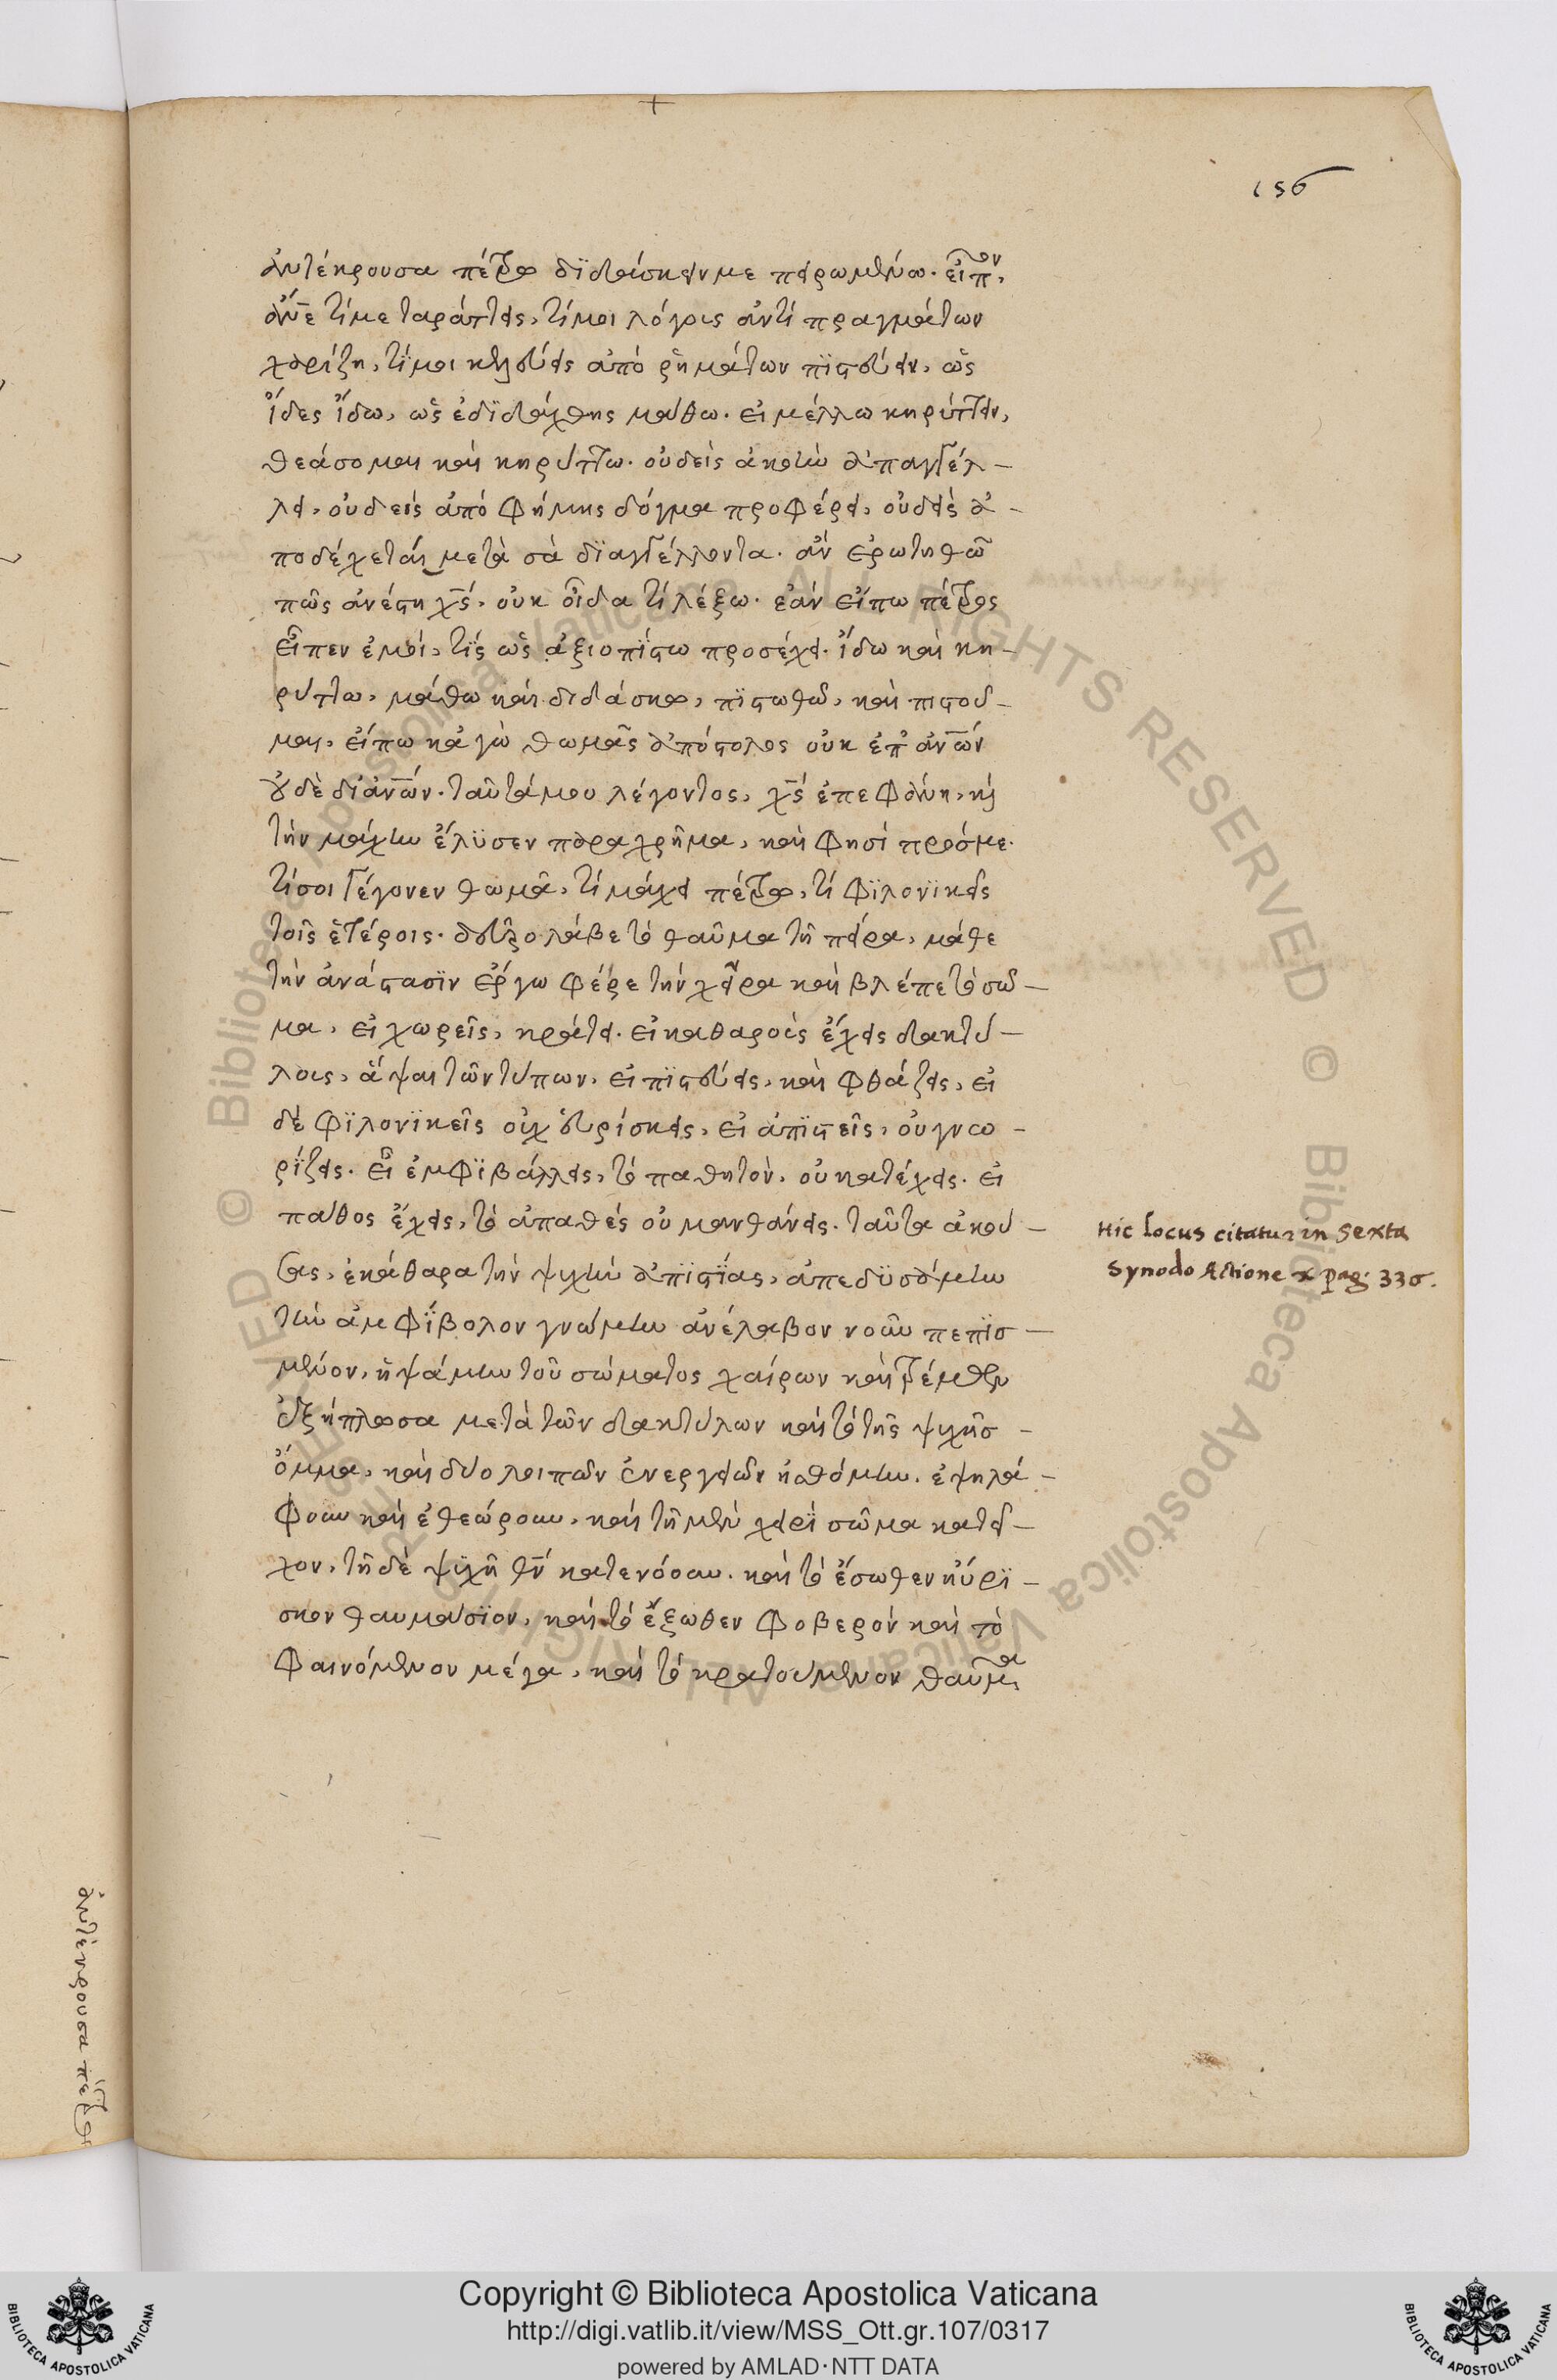 156
ἀντέκρουσα πέτρω διδάσκειν με πειρωμένω. εἶπον,
ἄνε τί με ταράττεις, τί μοι λόγοις ἀντὶ πραγμάτων
χαρίζη, τί μοι κελεύεις ἀπὸ ῥημάτων πϊστεύειν, ὡς
ἴδες ἴδω, ὡς ἐδϊδάχθης μάθω. εἰ μέλλω κηρύττειν,
θεάσομαι καὶ κηρύττω. οὐδεὶς ἀκοὴν ἀπαγγέλ-
λει, οὐδεὶς ἀπὸ φήμης δόγμα προφέρει, οὐδεὶς ἀ-
ποδέχεταί με τὰ σὰ δϊαγγέλλοντα. ἂν ἐρωτηθῶ
πῶς ἀνέστη χς, οὐκ οἶδα τί λέξω. ἐὰν εἴπω πέτρος
εἶπεν ἐμοί, τίς ὡς ἀξιοπίστω προσέχει. ἴδω καὶ κη-
ρύττω, μάθω καὶ διδάσκω, πϊστωθῶ, καὶ πιστοῦ-
μαι, εἴπω κἀγὼ θωμᾶς ἀπόστολος οὐκ ἐπ' ἀνῶν
οὐδὲ δι' ἀνῶν. ταῦτά μου λέγοντος, χς ἐπεφάνη, καὶ
τὴν μάχην ἔλϋσεν παραχρῆμα, καὶ φησὶ πρός με.
τί σοι γέγονεν θωμᾶ, τί μάχει πέτρω, τί φϊλονϊκεῖς
τοῖς ἑτέροις. δεῦρο λάβε τὸ θαῦμα τῆ πείρα, μάθε
τὴν ἀνάστασϊν ἔργω φέρε τὴν χεῖρα καὶ βλέπε τὸ σῶ-
μα, εἰ χωρεῖς, κράτει. εἰ καθαροὺς ἔχεις δακτύ-
λους, ἅψαι τῶν τύπων, εἰ πϊστεύεις, καὶ φθάζεις, εἰ
δὲ φϊλονϊκεῖς οὐχ εὑρίσκεις, εἰ ἀπϊστεῖς, οὐ γνω-
ρίζεις. εἰ ἀμφϊβάλλεις, τὸ παθητὸν οὐ κατέχεις. εἰ
πάθος ἔχεις, τὸ ἀπαθὲς οὐ μανθάνεις. ταῦτα ἀκού-
σας, ἐκάθαρα τὴν ψυχὴν ἀπϊστίας, ἀπεδϋσάμην
τὴν ἀμφίβολον γνώμην ἀνέλαβον νοῦν πεπϊσ-
μένον, ἡψάμην τοῦ σώματος χαίρων καὶ τρέμων
ἐξήπλωσα μετὰ τῶν δακτύλων καὶ τὸ τῆς ψυχῆς
ὄμμα, καὶ δύο λοιπῶν ἐνεργειῶν ἠσθόμην. ἐψηλά-
φουν καὶ ἐθεώρουν, καὶ τῆ μὲν χειρὶ σῶμα κατεῖ-
χον, τῆ δὲ ψϋχῆ θν κατενόουν. καὶ τὸ ἔσωθεν ηὕρϊ-
σκον θαυμάσϊον, καὶ τὸ ἔξωθεν φοβερὸν καὶ τὸ
φαινόμενον μέγα, καὶ τὸ κρατούμενον θαῦμα
Hic locus citatur in Sexta
Synodo Actione x pag. 330.
ἀντέκρουσα πέτρω
© Biblioteca Apostolica Vaticana ALL RIGHTS RESERVED © Biblioteca Apostolica Vaticana ALL RIGHTS RESERVED
Copyright © Biblioteca Apostolica Vaticana
http://digi.vatlib.it/view/MSS_Ott.gr.107/0317
powered by AMLAD·NTT DATA
BIBLIOTECA APOSTOLICA VATICANA
BIBLIOTECA APOSTOLICA VATICANA